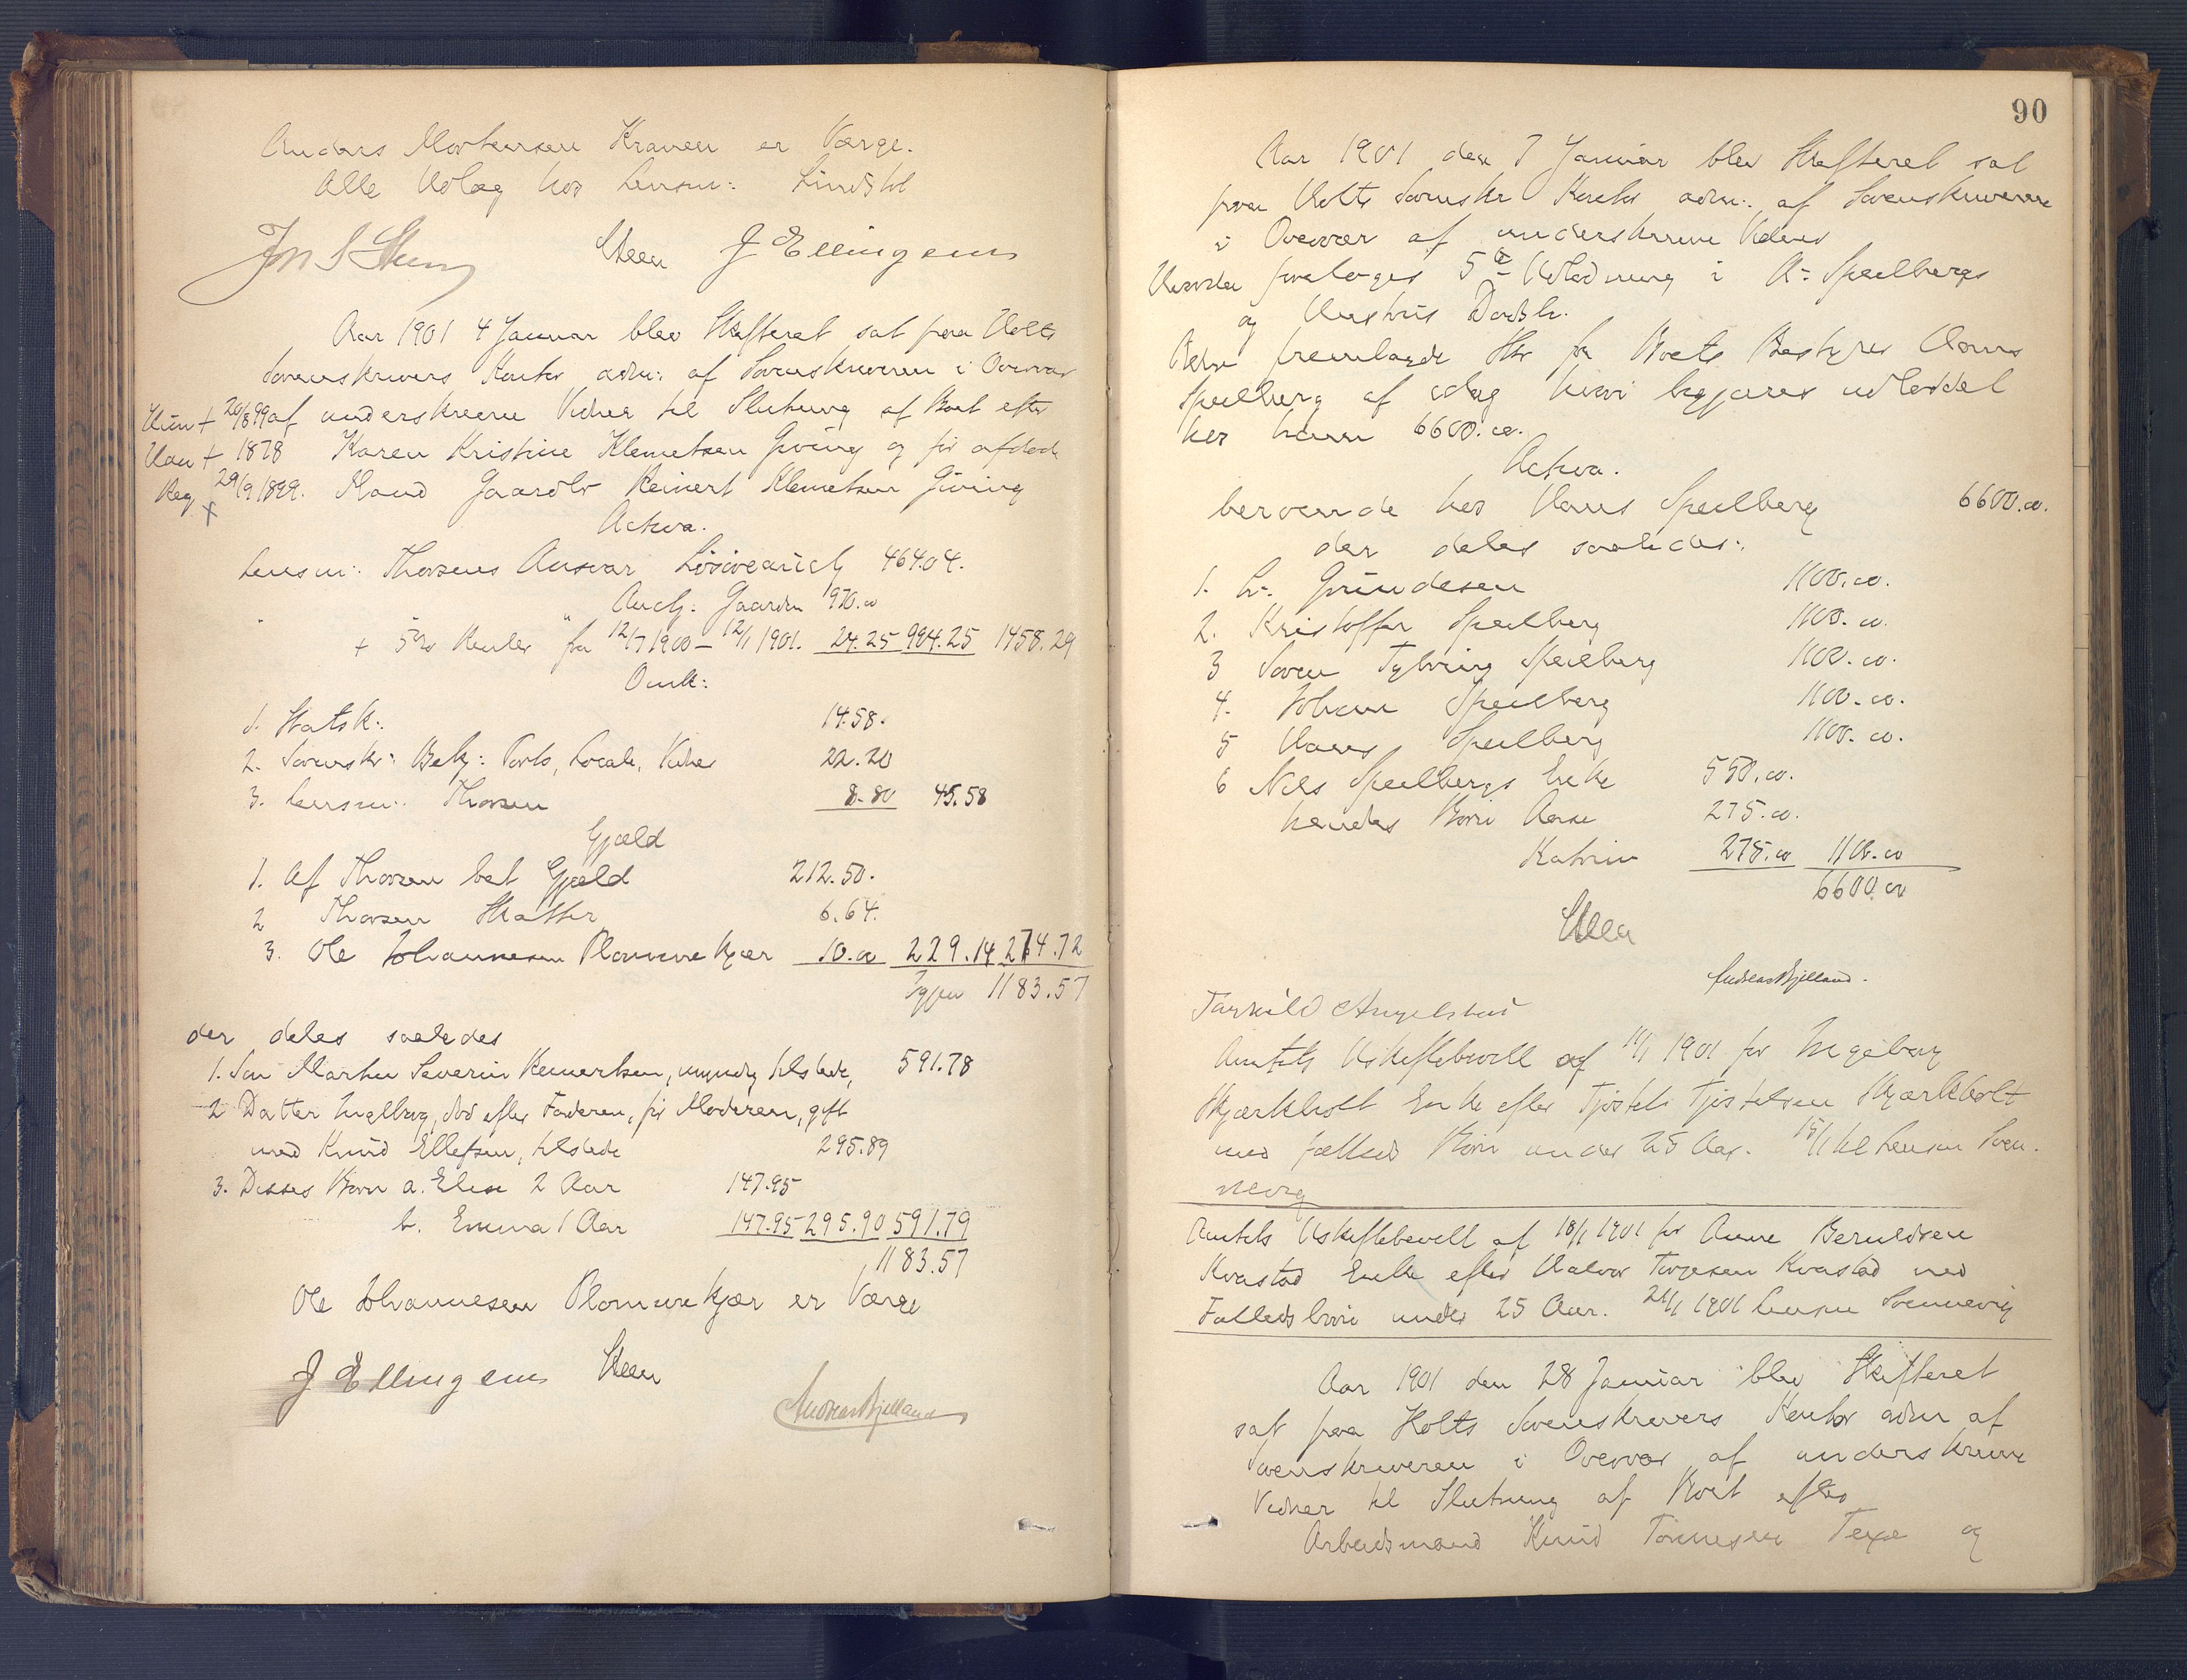 Anders Mortensen Kranen er Værge.
Alle Udlæg hos Lensm: Lindstøl
Steen J Ellingsens
Aar 1901 4 Januar blev Skifteret sat paa Holts
Sorenskrivers Kontor adm: af Sorenskriveren i Overvær
Hun + 20/8 99 af underskrevne Vidner til Slutning af Boet efter
Han + 1878 Karen Kristine Klemetsen Gøving og før afdøde
Reg 29/9 1899. Mand Gaardbr Reinert Klemetsen Gjøving
x
Activa.
Lensm: Thorsens Ansvar Løsøreauct 464.04.
" Auct: Gaarden 970.00
+ 5% Renter fra 12/7 1900 – 12/1 1901. 24.25 994.25 1458.29
Omk:
1. Statsk: 14.58.
2. Sorenskr: Bek: Porto, Locale, Vidner 22.20
3. Lensm: Thorsen 8.80 45.58
Gjæld
1. Af Thorsen bet Gjæld 212.50.
2 Thorsen Skatter 6.64.
3. Ole Johannesen Plommekjær 10.00 229.14 274.72
Igjen 1183.57
der deles saaledes
1. Søn Martin Severin Reinertsen, myndig tilstede, 591.78
2 Datter Ingeborg, død efter Faderen, før Moderen, gift
med Knud Ellefsen, tilstede 295.89
3. Disses Børn a. Elise 2 Aar 147.95
b. Emma 1 Aar 147.95 295.90 591.79
1183.57
Ole Johannesen Plommekjær er Værge
J Ellingsens Steen
Andreas Bjelland
90
Aar 1901 den 7 Januar blev Skifteret sat
paa Holts Sorenskr Kontor adm: af Sorenskriveren
i Overvær af underskrevne Vidner
Hvorda foretoges 5te Udlodning i A: Speilbergs
og Hustrus Dødsbo.
Adm fremlagde Skr fra Boets Bestyrer Hans
Speilberg af idag hvori begjæres udloddet
hos ham 6600.00.
Activa.
beroende hos Hans Speilberg 6600.00.
der deles saaledes:
1. L. Gundesen 1100.00.
2. Kristoffer Speilberg 1100.00.
3 Søren Tybring Speilberg 1100.00.
4. Johan Speilberg 1100.00.
5 Hans Speilberg 1100.00.
6 Nils Speilbergs Enke 550.00.
hendes Børn Aase 275.00.
Katrin 275.00 1100.00
6600.00
Steen
Andreas Bjelland.
Tarkild Angelstad
Amtets Uskiftebevill af 11/1 1901 for Ingeborg
Skjærkholt Enke efter Tjøstel Tjøstelsen Skjærkholt
med fælleds Børn under 25 Aar. 15/1 til Lensm Sven-
nevig
Amtets Uskiftebevill af 18/1 1901 for Anne Beruldsen
Kvastad Enke efter Halvor Torjesen Kvastad med
Fælleds børn under 25 Aar. 21/1 1901 Lensm Svennevig
Aar 1901 den 28 Januar blev Skifteret
sat paa Holts Sorenskrivers Kontor adm af
Sorenskriveren i Overvær af underskrevne
Vidner til Slutning af Boet efter
Arbeidsmand Knud Tønnesen Texe og